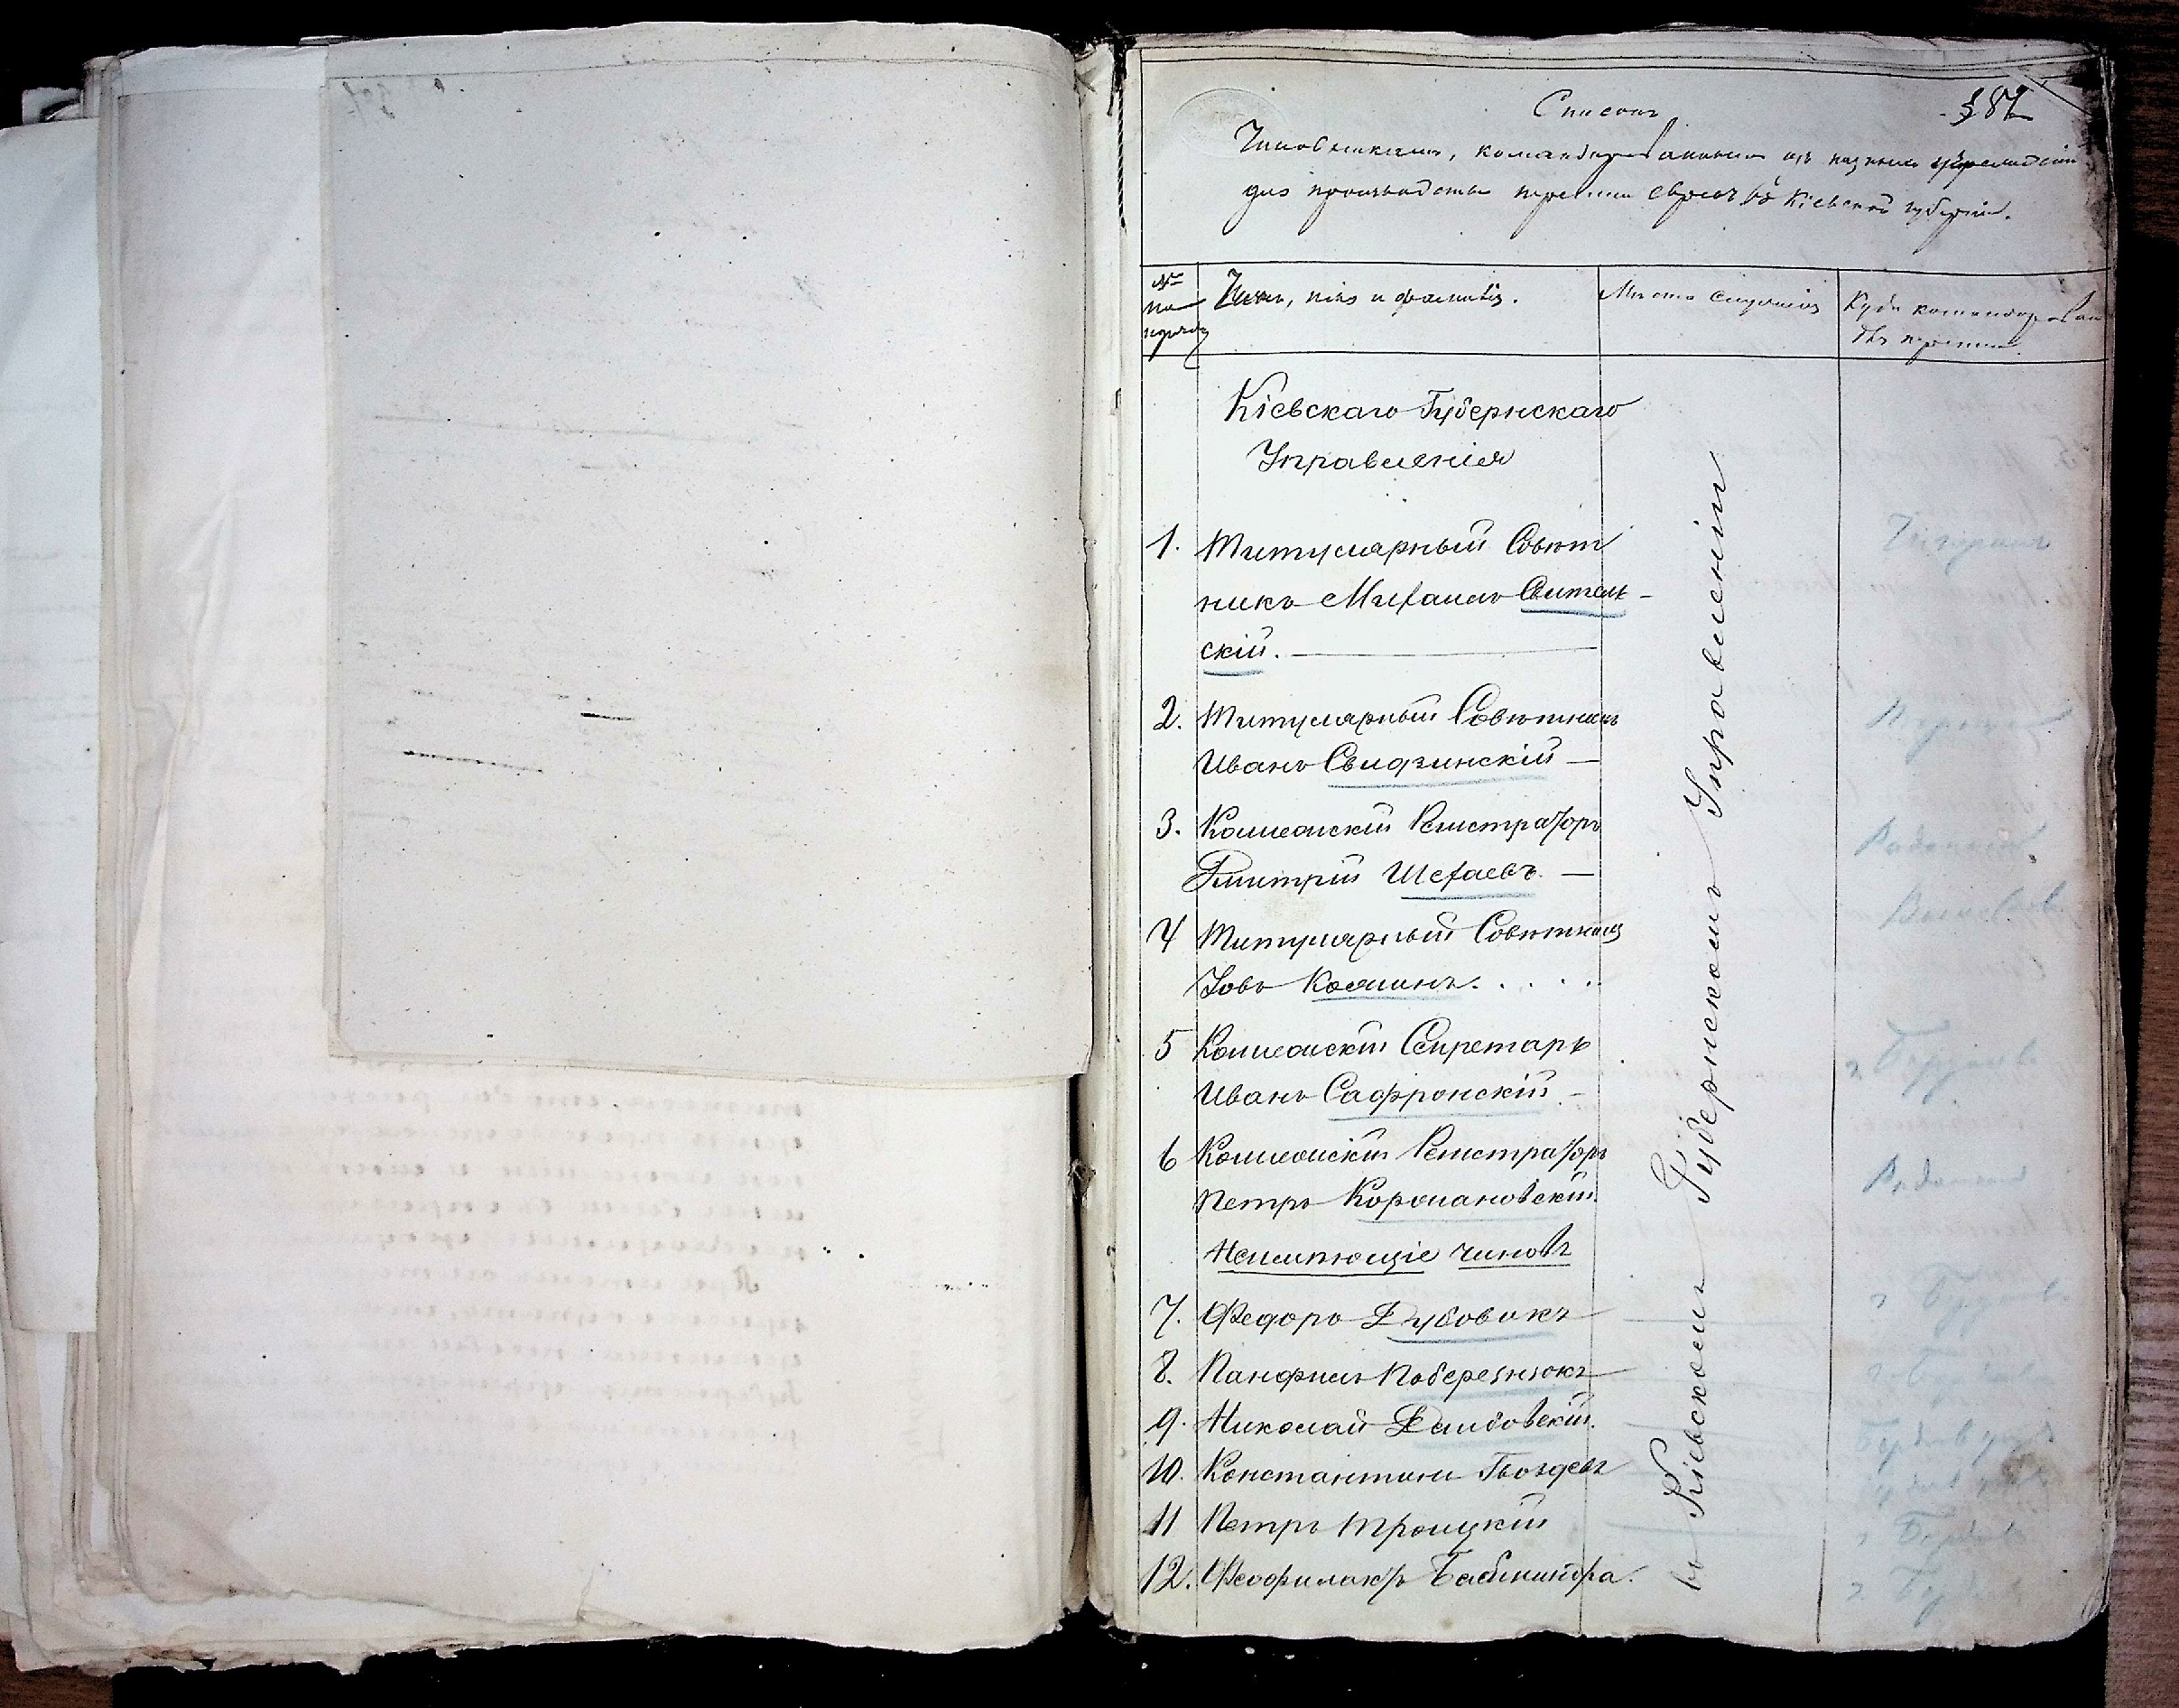 Списокъ
387
Чиновникамъ, командированнымъ изъ разныхъ учрежденій
для производства переписи евреевъ въ Кіевской губерніи.
№
по
порядку
Чинъ, имя и фамилія.
Мѣсто служенія
Куда командирован
для переписи.
Кіевскаго Губернскаго
Управленія
1. Титулярный Совѣт
никъ Михаилъ Свитель-
скій.
Чигиринъ
2. Титулярный Совѣтникъ
Иванъ Свидзинскій
3. Коллежскій Регистраторъ
Дмитрій Шехаевъ.
Радомысль
4 Титулярный Совѣтникъ
Іовъ Косминъ.....
Васильков
5 Коллежскій Секретарь
Иванъ Сафронскій
г. Бердичев
6 Коллежскій Регистраторъ
Петръ Коромановскій
Радомысль
Неимѣющіе чиновъ
7. Федоръ Дубовикъ
г. Бердичев
8. Панфилъ Побережнюкъ
9. Николай Дембовскій.
10. Константинъ Гвоздевъ
11 Петръ Троицкій
12. Феофилактъ
въ Кіевскомъ Губернскомъ Управленіи